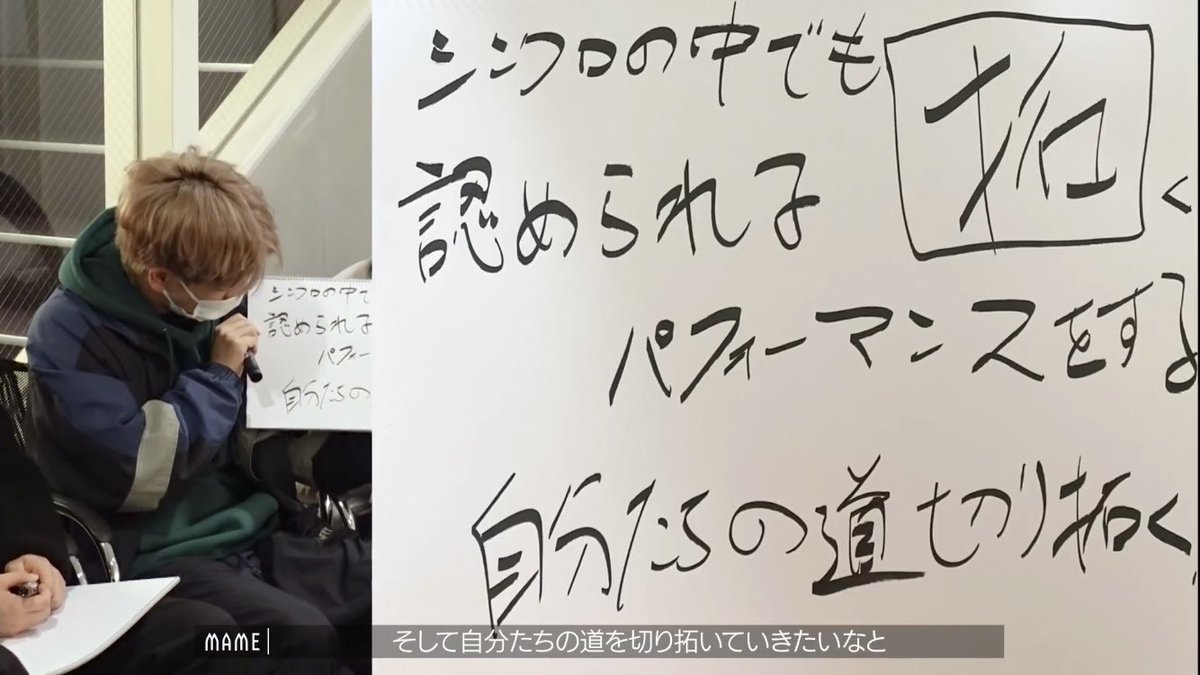 シンクロの中でも
拓く
認められる
パフォーマンスをする
自分たちの道切り拓く
シンクロの中で
認められる
パフィー
自分たちの
MAME
そして自分たちの道を切り拓いていきたいなと